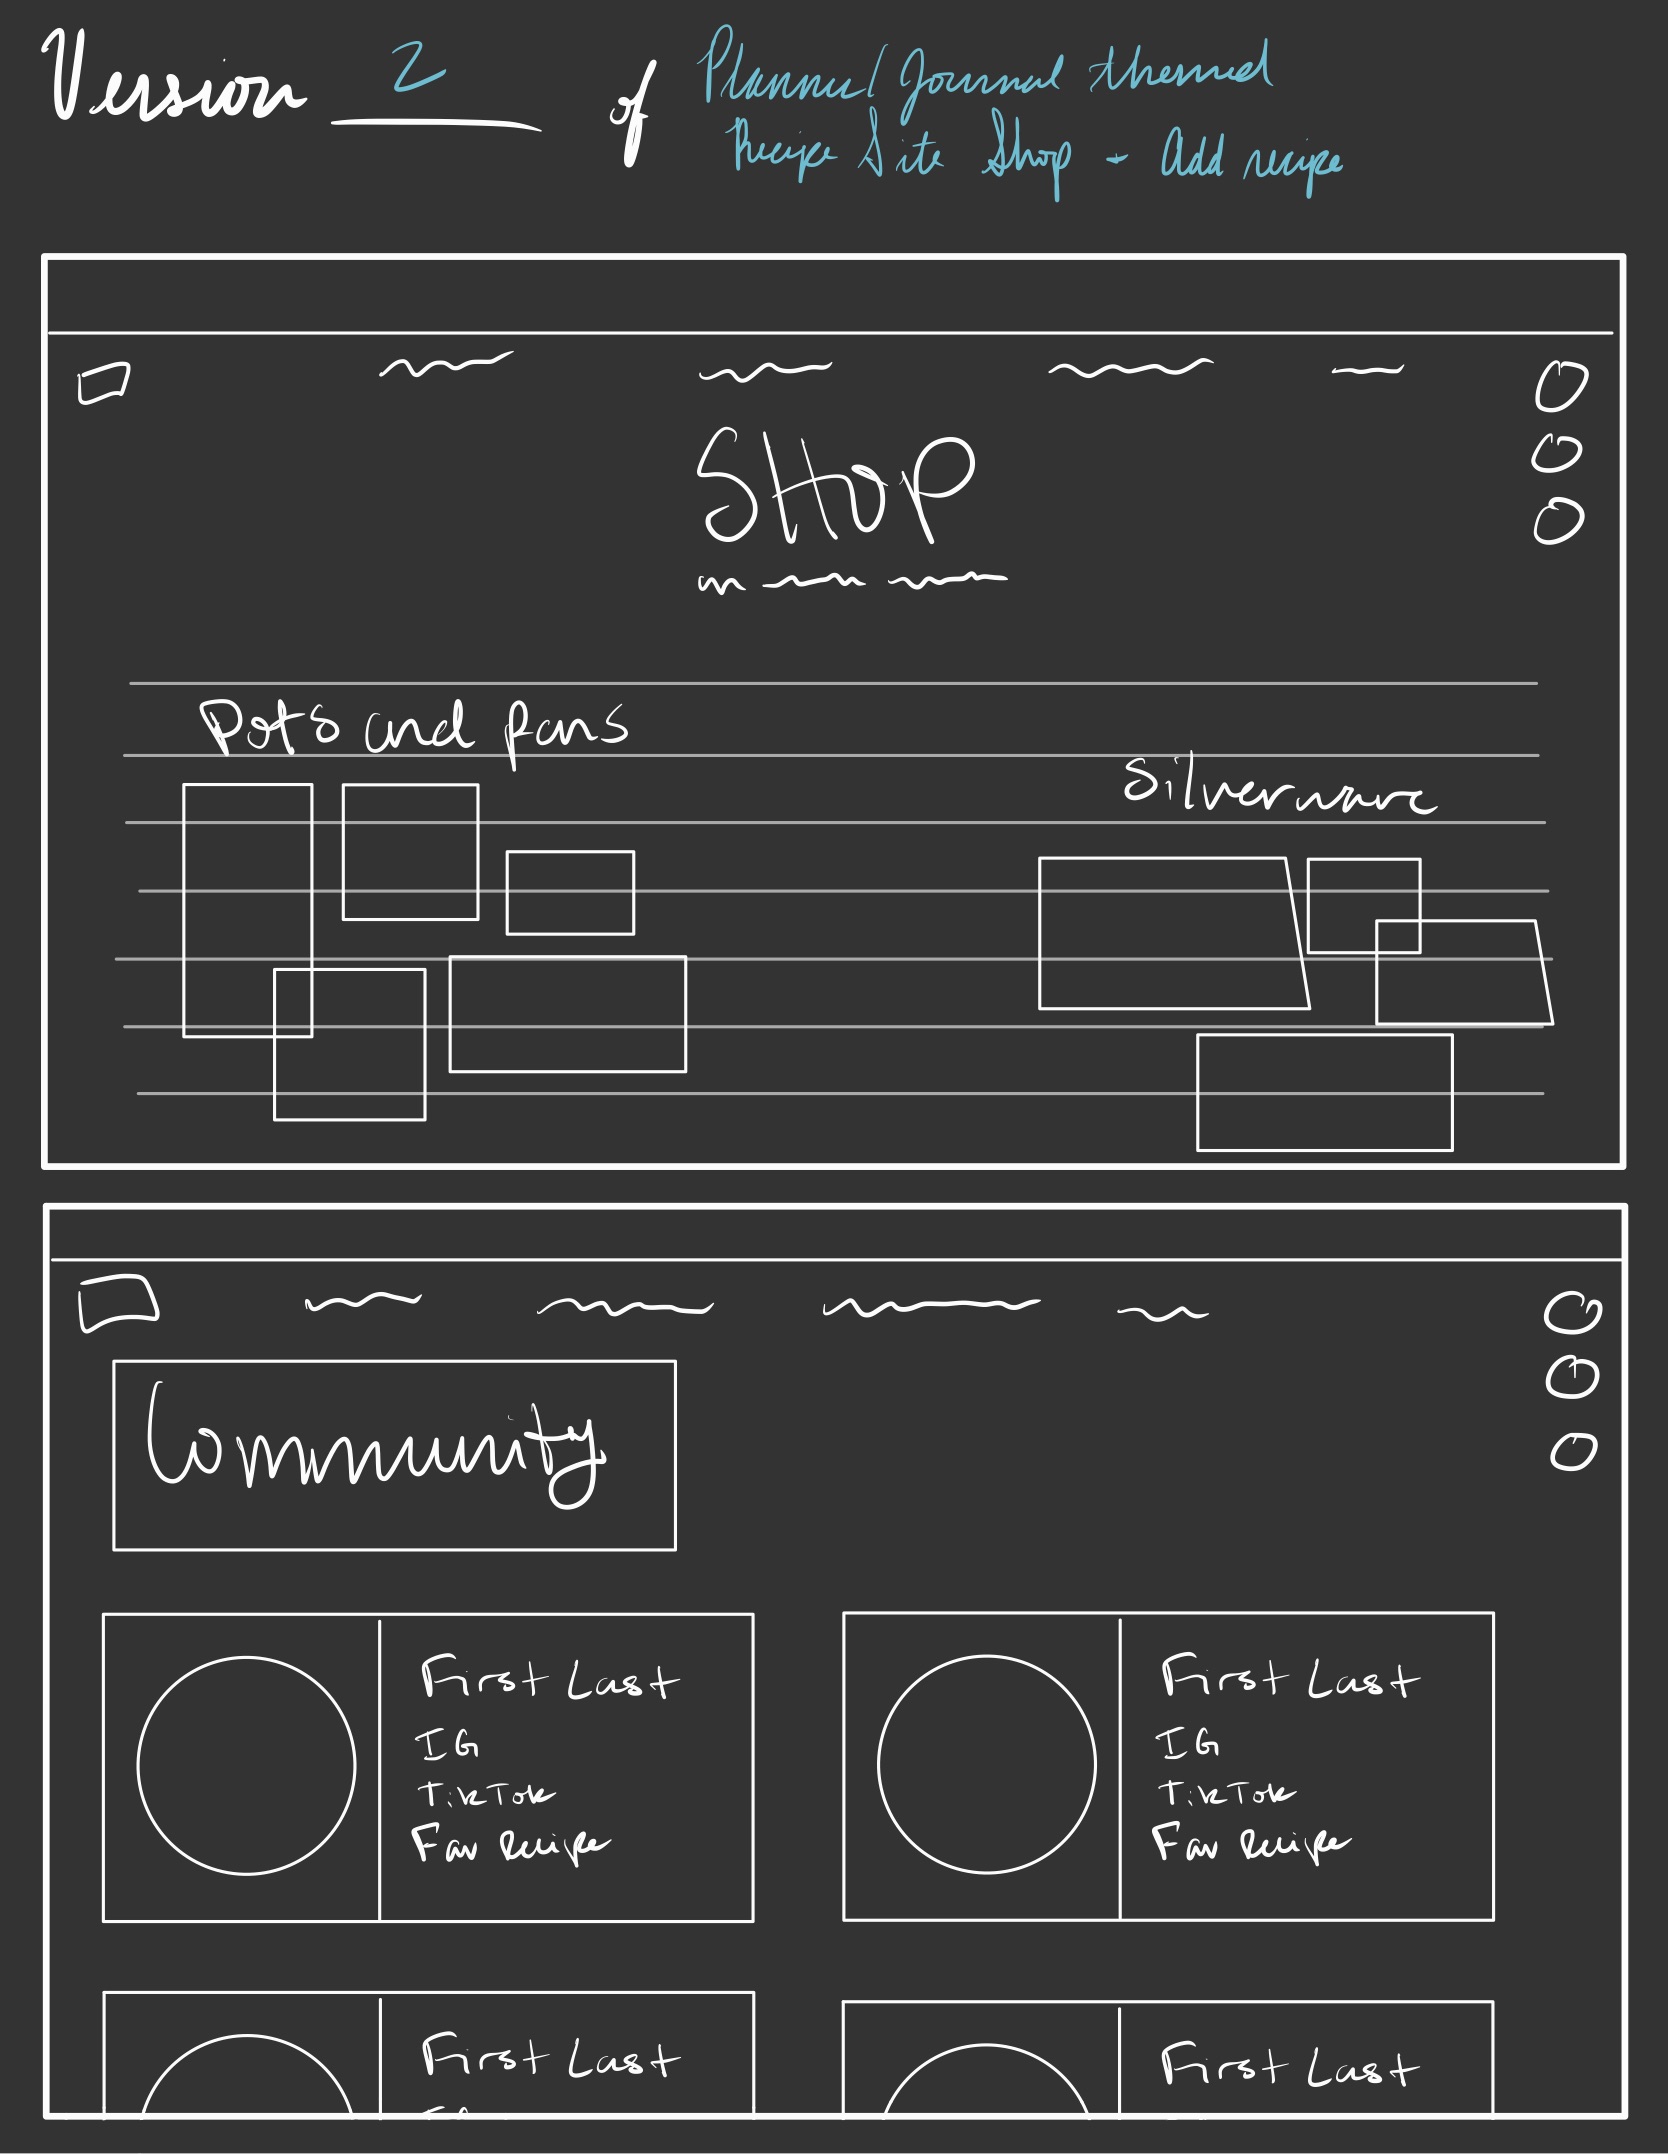 Version 2 of Planner/Journal themed
Recipe Site Shop - Add recipe
SHOP
Pots and pans
Silverware
Community
First Last
IG
TikTok
Fav Recipe
First Last
IG
TikTok
Fav Recipe
First Last
First Last